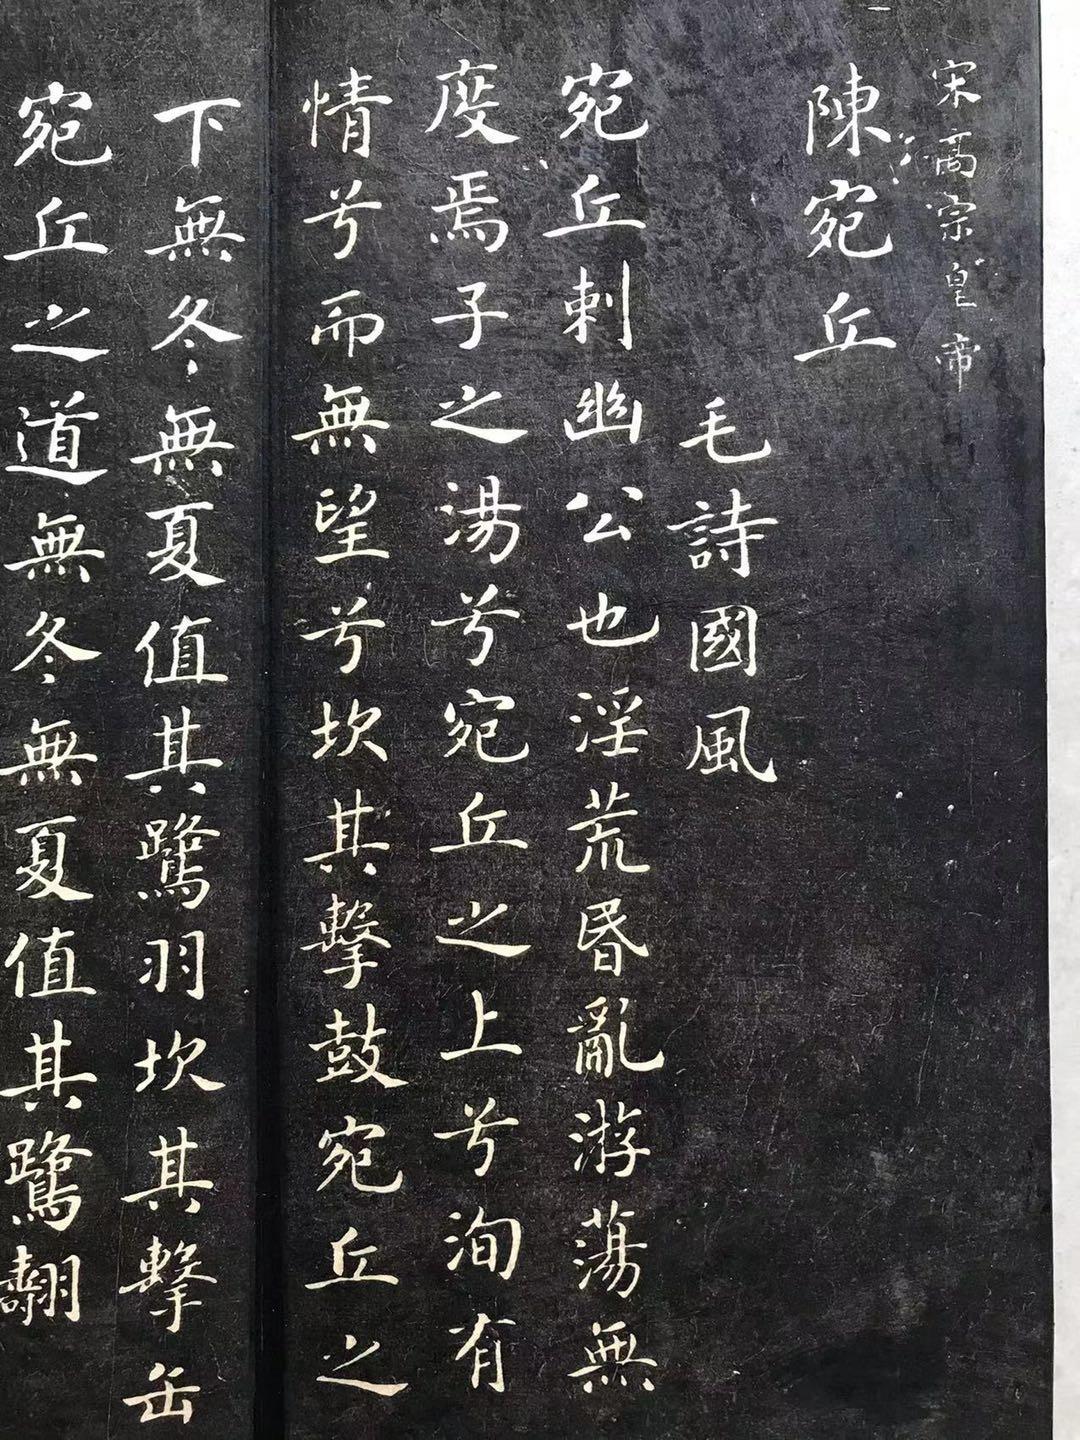 宋高宗皇帝
陳宛丘
毛詩國風
宛丘刺幽公也淫荒昬亂游蕩無
度焉子之湯兮宛丘之上兮洵有
情兮而無望兮坎其擊鼓宛丘之
下無冬無夏值其鷺羽坎其擊缶
宛丘之道無冬無夏值其鷺翿